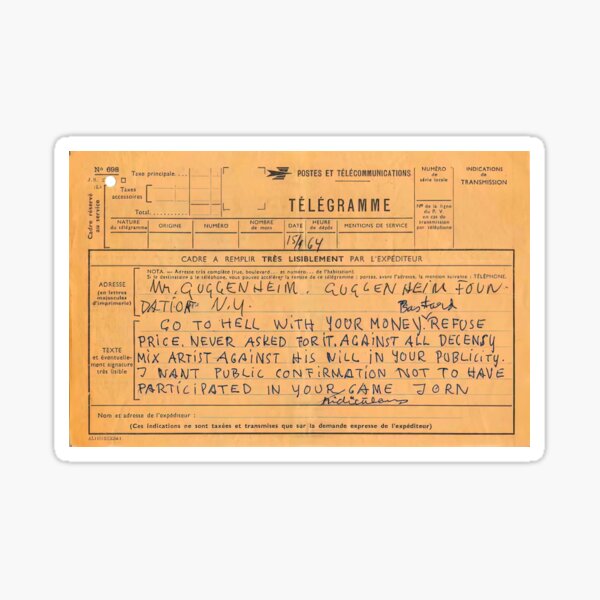 Nº 698
Taxe principale.
Taxes accessoires
Total
Cadre réservé au service
POSTES ET TÉLÉCOMMUNICATIONS
TÉLÉGRAMME
NUMÉRO de série locale:
Nº de la ligne du P. V. en cas de transmission par téléphone
INDICATIONS DE TRANSMISSION
NATURE du télégramme
ORIGINE
NUMÉRO
NOMBRE de mots
DATE
HEURE de dépôt
MENTIONS DE SERVICE
64
CADRE A REMPLIR TRÈS LISIBLEMENT PAR L'EXPÉDITEUR
ADRESSE (en lettres majuscules d'imprimerie)
NOTA. — Adresse très complète (rue, boulevard... et numéro... de l'habitation)
Si le destinataire a le téléphone, vous pouvez accélérer la remise de ce télégramme : portez, avant l'adresse, la mention suivante : TÉLÉPHONE.
Mr. GUGGENHEIM. GUGGENHEIM FOUN-
DATION N.Y.
TEXTE et éventuellement signature très lisible
Bastard
GO TO HELL WITH YOUR MONEY REFUSE
PRICE. NEVER ASKED FOR IT. AGAINST ALL DECENSY
MIX ARTIST AGAINST HIS WILL IN YOUR PUBLICITY.
I WANT PUBLIC CONFIRMATION NOT TO HAVE
PARTICIPATED IN YOUR GAME JORN
ridiculous
Nom et adresse de l'expéditeur :
(Ces indications ne sont taxées et transmises que sur la demande expresse de l'expéditeur)